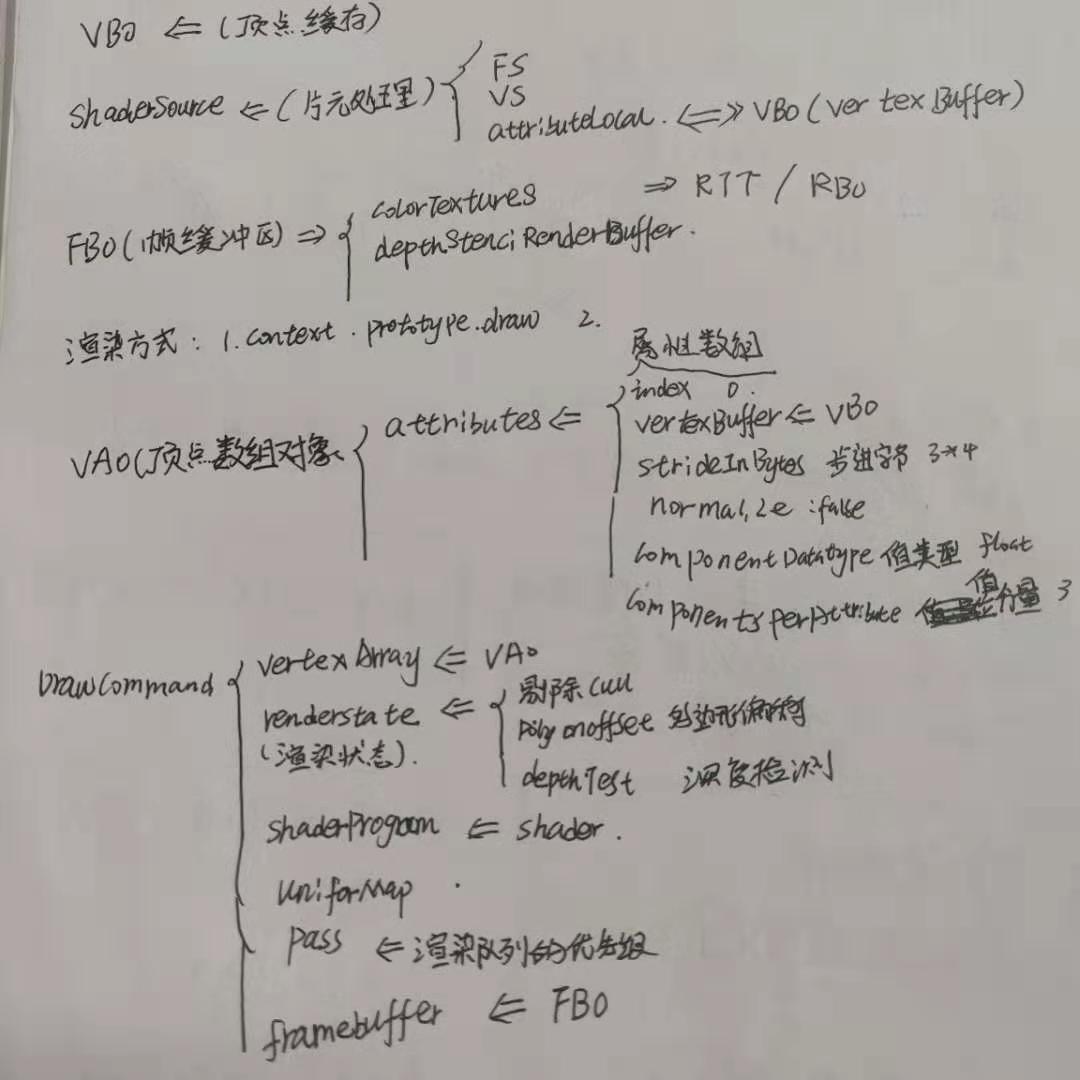 VBO ⇐ (顶点缓存)
FS
VS
shaderSource ⇐ (片元处理)
attributeLocal. ⇐⇒ VBO (vertexBuffer)
colorTextures ⇒ RTT / RBO
FBO (帧缓冲区) ⇒
depthStenciRenderBuffer.
渲染方式: 1. context.prototype.draw 2.
属性数组
index 0.
attributes ⇐
vertexBuffer ⇐ VBO
VAO(顶点数组对象
strideInBytes 步进字节 3*4
normalize : false
componentDatatype 值类型 float
componentsperAttribute 值分量 3
vertexArray ⇐ VAO
DrawCommand
剔除cull
renderstate ⇐
polyonoffset 多边形偏移
(渲染状态).
depthTest 深度检测
shaderProgram ⇐ shader.
uniforMap .
pass ⇐ 渲染队列的优先级
framebuffer ⇐ FBO